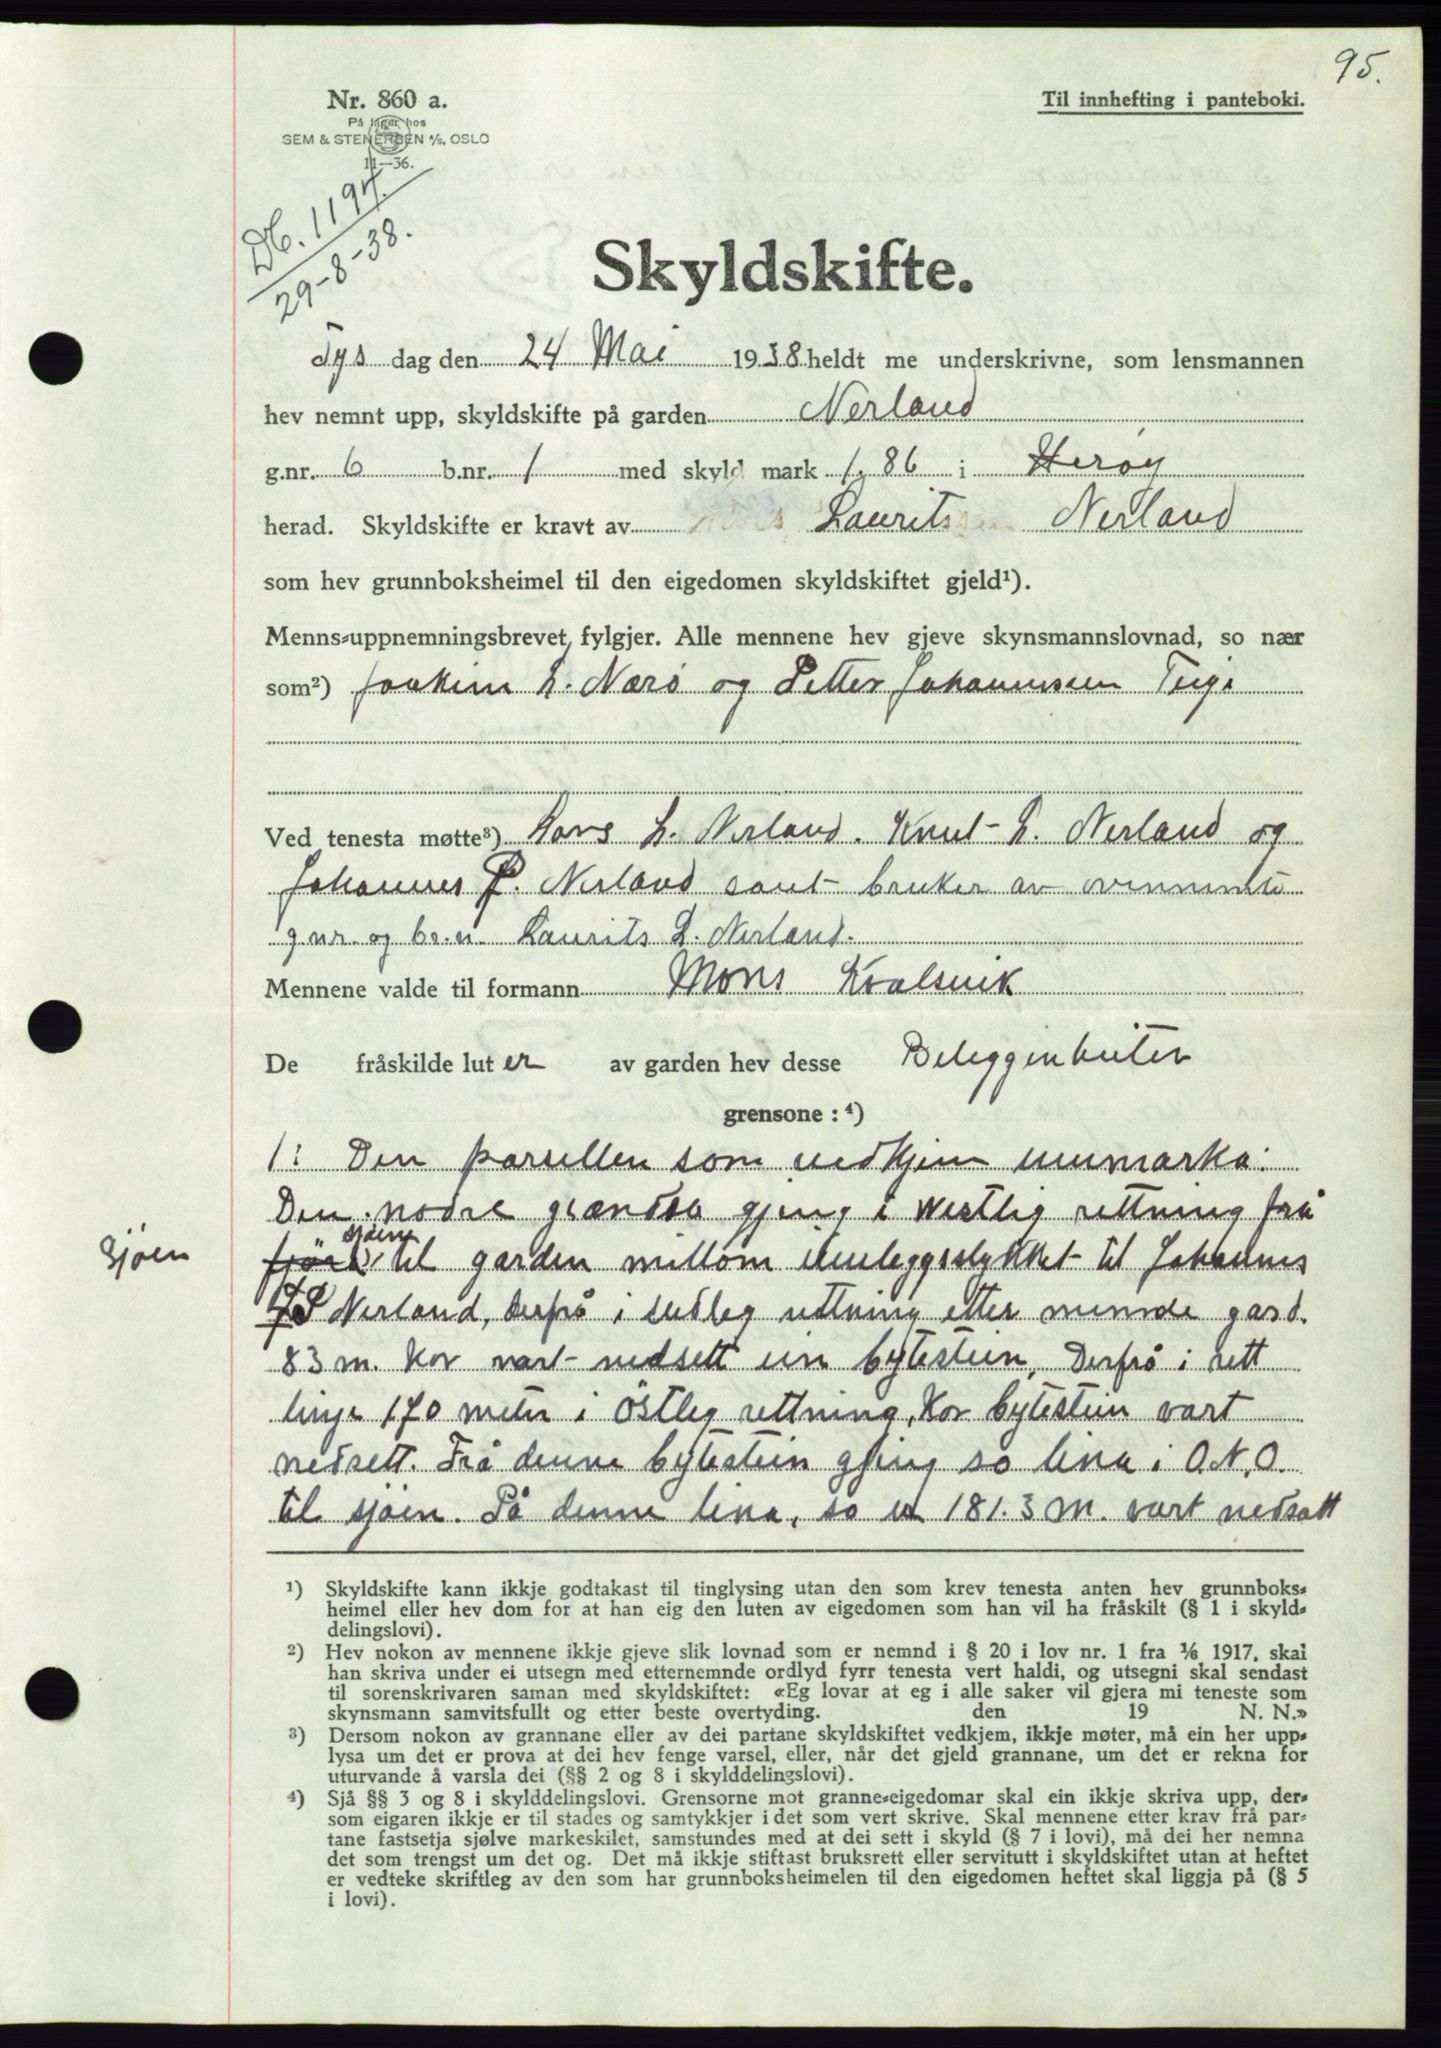 95.
Nr. 860 a.
Til innhefting i panteboki.
På lager hos
SEM & STENERSEN A/S, OSLO
11—36.
Db. 1197.
29-8-38.
Skyldskifte.
Tys dag den 24 Mai 1938 heldt me underskrivne, som lensmannen
hev nemnt upp, skyldskifte på garden Nerland
g.nr. 6 b.nr. 1 med skyld mark 1.86 i Herøy
herad. Skyldskifte er kravt av Laurits Nerland
som hev grunnboksheimel til den eigedomen skyldskiftet gjeld¹).
Menns-uppnemningsbrevet fylgjer. Alle mennene hev gjeve skynsmannslovnad, so nær
som²) Joakim L. Nærö og Petter Johannessen Teige
Ved tenesta møtte³) Lars L. Nerland. Knut L. Nerland og
Johannes P. Nerland samt bruker av ovennemnte
g.nr. og br.n. Laurits L. Nerland.
Mennene valde til formann Mons Kvalsvik
De fråskilde lut er av garden hev desse
grensone : ⁴)
1: Den parsellen som vedkjem innmarka:
Den nodre grændsa gjeng i westlig rettning frå
sjöen
sjøen
fjöra til garden millom imleggsstykket til Johannes
P Nerland, derfrå i sudleg rettning etter nemnde gard.
83 m. kor vart nedsett ein bytestein, Derfrå i rett
linje 170 meter i östleg rettning, kor bytestein vart
nedsett. Frå denne bytestein gjeng so lina i O.N.O.
til sjöen. På denne lina, so er 181.3 m. vart nedsatt
¹) Skyldskifte kann ikkje godtakast til tinglysing utan den som krev tenesta anten hev grunnboks-
heimel eller hev dom for at han eig den luten av eigedomen som han vil ha fråskilt (§ 1 i skyld-
delingslovi).
²) Hev nokon av mennene ikkje gjeve slik lovnad som er nemnd i § 20 i lov nr. 1 fra 1/6 1917, skal
han skriva under ei utsegn med etternemnde ordlyd fyrr tenesta vert haldi, og utsegni skal sendast
til sorenskrivaren saman med skyldskiftet: «Eg lovar at eg i alle saker vil gjera mi teneste som
skynsmann samvitsfullt og etter beste overtyding. den 19 N. N.»
³) Dersom nokon av grannane eller av dei partane skyldskiftet vedkjem, ikkje møter, må ein her upp-
lysa um det er prova at dei hev fenge varsel, eller, når det gjeld grannane, um det er rekna for
uturvande å varsla dei (§§ 2 og 8 i skylddelingslovi).
⁴) Sjå §§ 3 og 8 i skylddelingslovi. Grensorne mot granne-eigedomar skal ein ikkje skriva upp, der-
som eigaren ikkje er til stades og samtykkjer i det som vert skrive. Skal mennene etter krav frå par-
tane fastsetja sjølve markeskilet, samstundes med at dei sett i skyld (§ 7 i lovi), må dei her nemna
det som trengst um det og. Det må ikkje stiftast bruksrett eller servitutt i skyldskiftet utan at heftet
er vedteke skriftleg av den som har grunnboksheimelen til den eigedomen heftet skal liggja på (§ 5
i lovi).